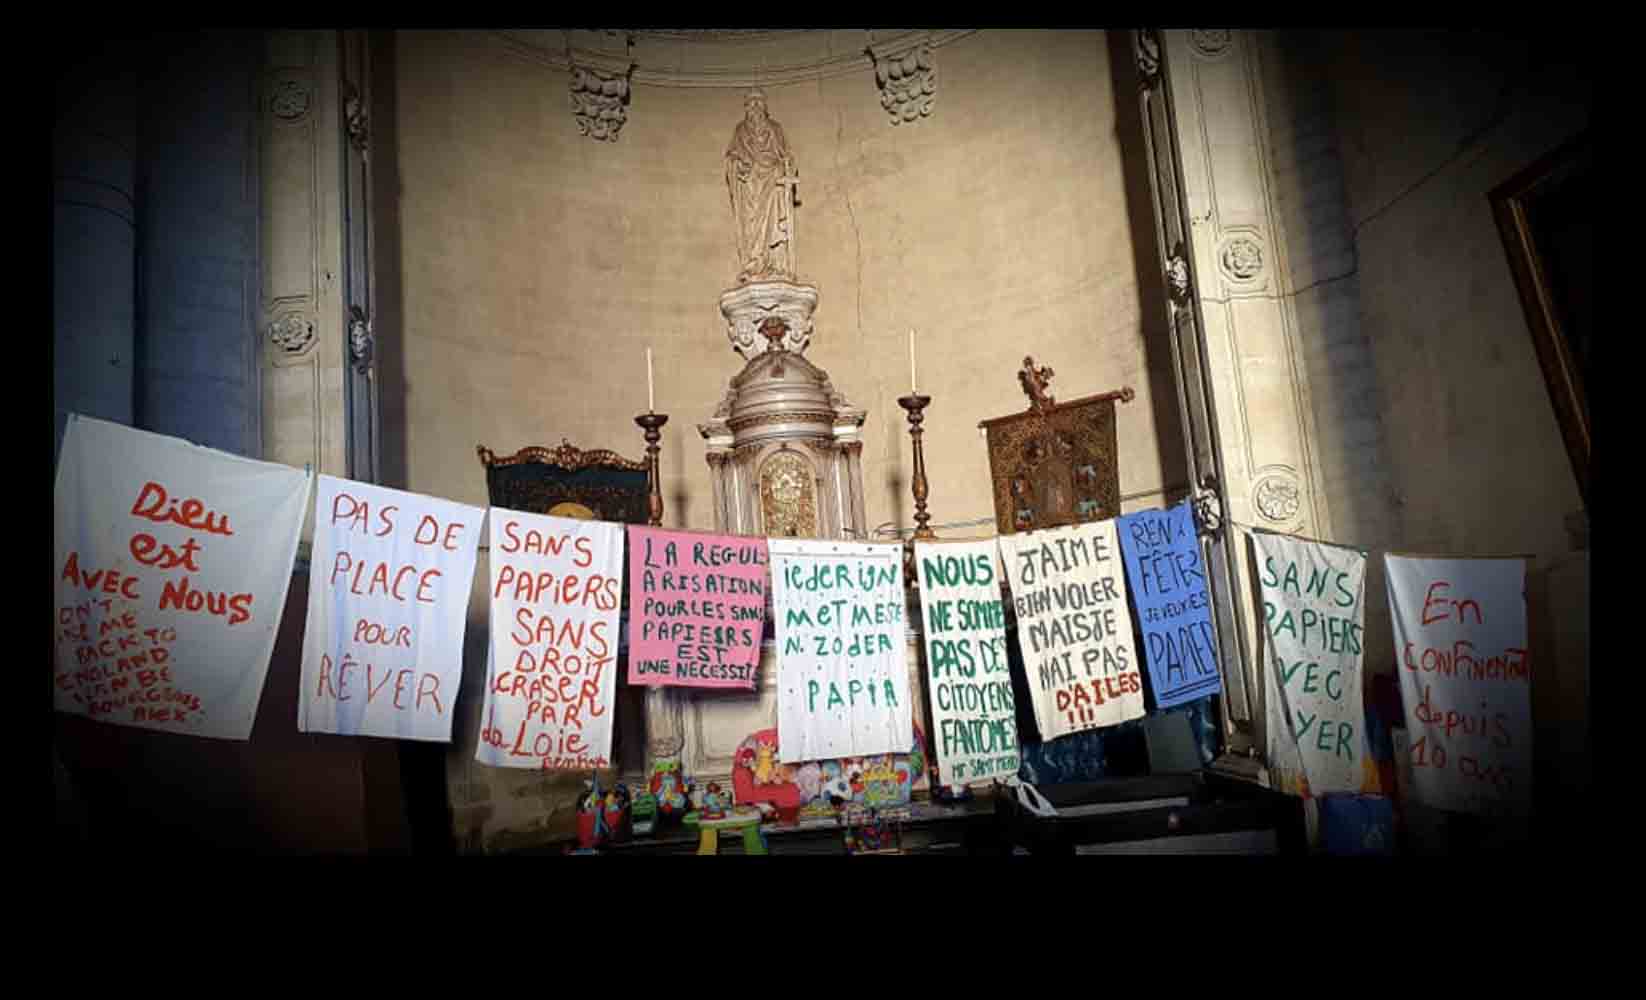 Dieu
est
AVEC NOUS
ME
BACK TO
BOURGEOIS
ALEX
PAS DE
PLACE
POUR
RÊVER
SANS
PAPIERS
SANS
DROIT
CRASER
PAR
La Loie
LA REGUL
ARISATION
POUR LES SANS
PAPIERS
EST
UNE NECESSIT
iEDERIJN
METMESE
N. ZODER
PAPIR
NOUS
NE SOMME
PAS DES
CITOYENS
FANTÔMES
J'AIME
BIEN VOLER
MAIS JE
NAI PAS
D'AILES
!!!
RIEN À
FÊTER
JE VEUX ES
PAPIER
SANS
PAPIERS
VEC
YER
En
CONFINEMENT
depuis
10 ans